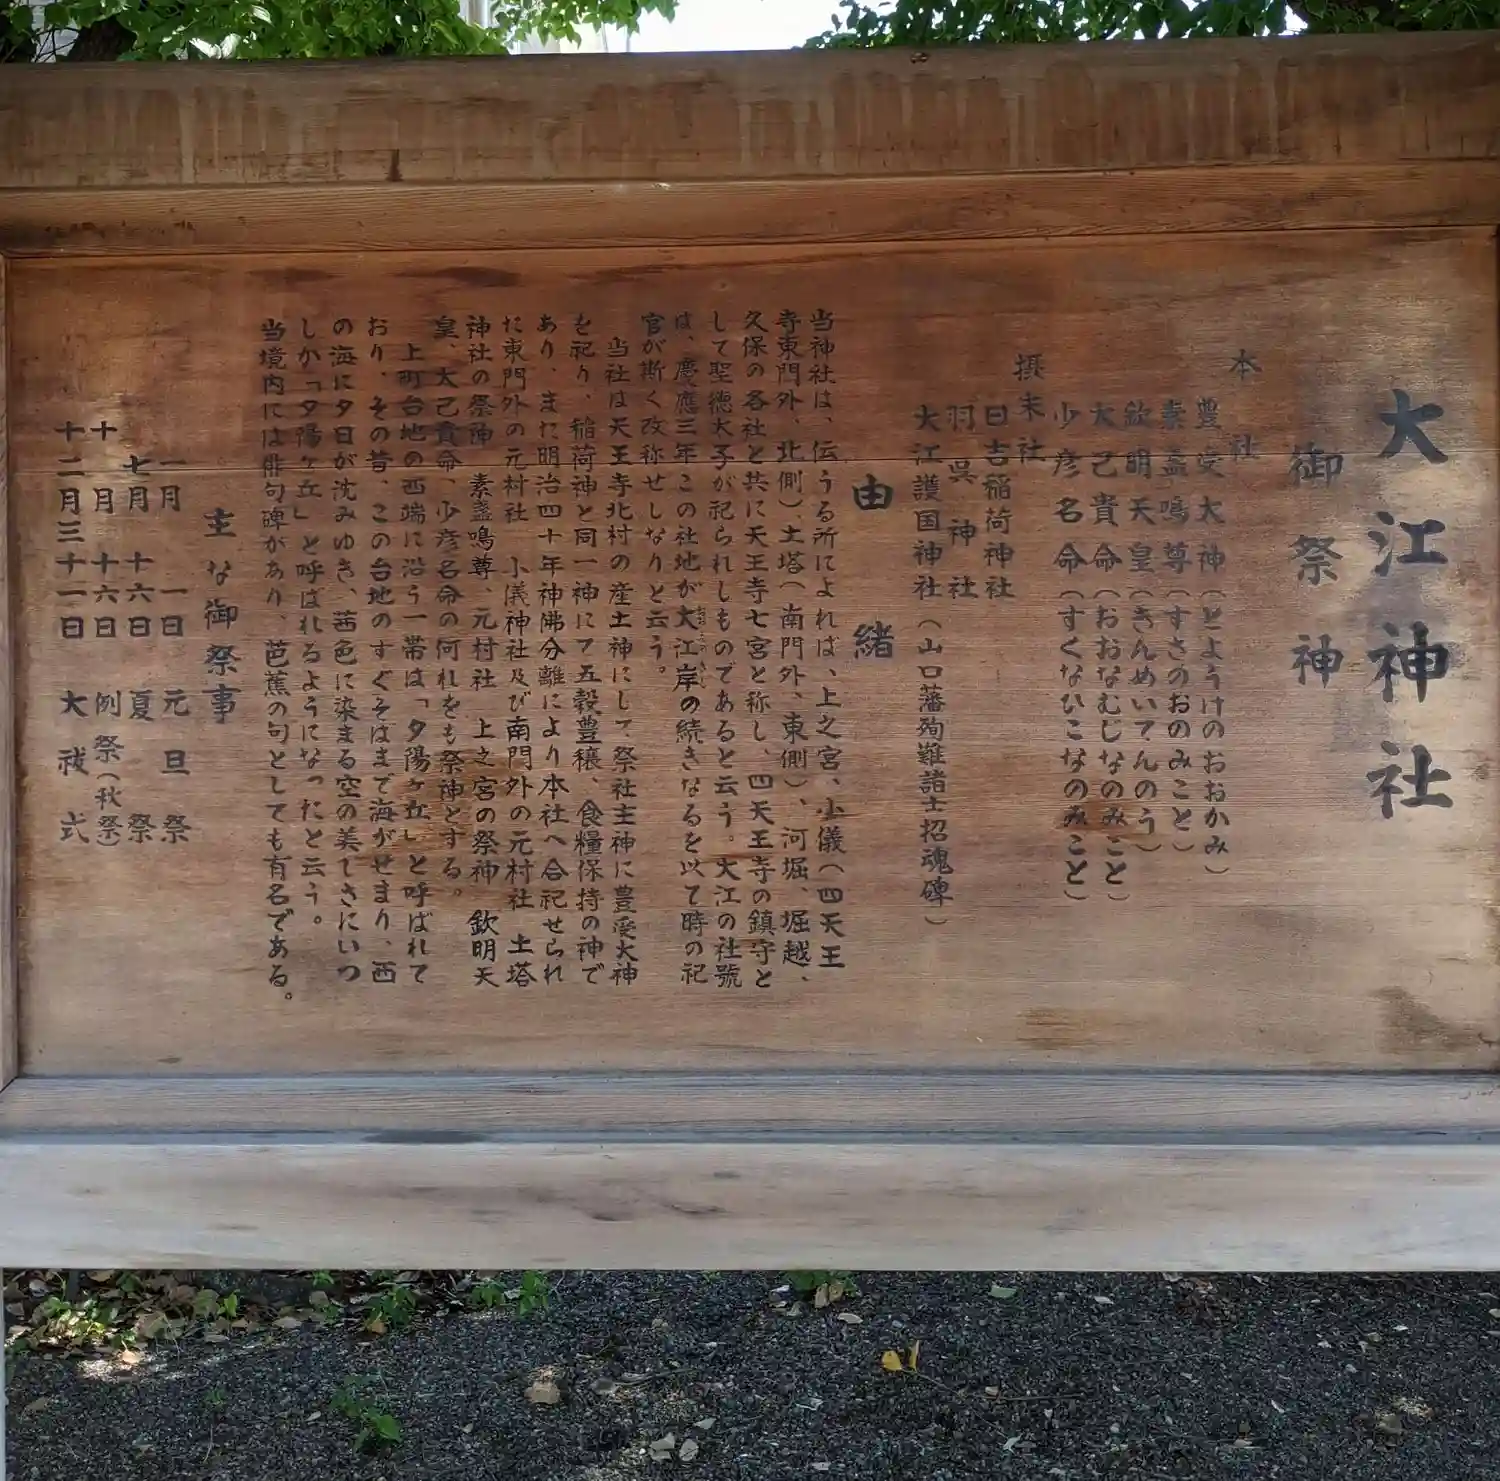 大江神社
御祭神
本社
豊受大神(とようけのおおかみ)
素盞鳴尊(すさのおのみこと)
欽明天皇(きんめいてんのう)
大己貴命(おおなむじなのみこと)
少彦名命(すくなひこなのみこと)
摂末社
日吉稲荷神社
羽呉神社
大江護国神社(山口藩殉難諸士招魂碑)
由緒
当神社は、伝うる所によれば、上之宮、小儀(四天王
寺東門外、北側)土塔(南門外、東側)、河堀、堀越、
久保の各社と共に天王寺七宮と称し、四天王寺の鎮守と
して聖徳太子が祀られしものであると云う。大江の社號
は、慶應三年この社地が大江岸の続きなるを以て時の祀
官が斯く改称せしなりと云う。
当社は天王寺北村の産土神にして祭社主神に豊受大神
を祀り、稲荷神と同一神にて五穀豊穣、食糧保持の神で
あり、また明治四十年神佛分離により本社へ合祀せられ
た東門外の元村社 小儀神社及び南門外の元村社 土塔
神社の祭神 素盞鳴尊、元村社 上之宮の祭神 欽明天
皇、大己貴命、少彦名命の何れをも祭神とする。
上町台地の西端に沿う一帯は「夕陽ヶ丘」と呼ばれて
おり、その昔、この台地のすぐそばまで海がせまり、西
の海に夕日が沈みゆき、茜色に染まる空の美しさにいつ
しか「夕陽ヶ丘」と呼ばれるようになったと云う。
当境内には俳句碑があり、芭蕉の句としても有名である。
主な御祭事
一月 一日 元旦祭
七月 十六日 夏祭
十月 十六日 例祭(秋祭)
十二月三十一日 大祓式